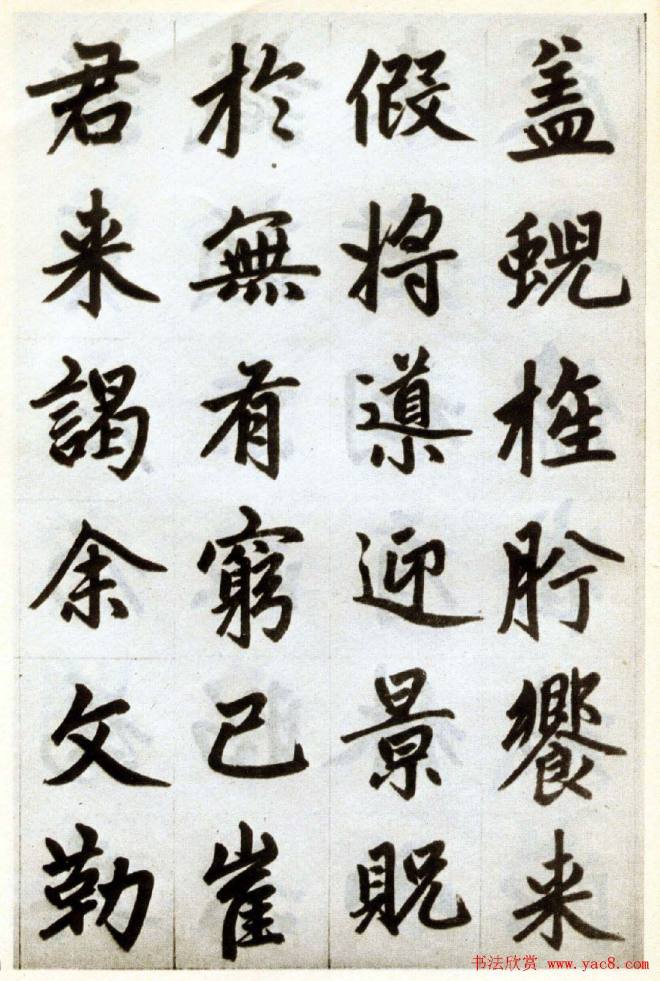 盖蜺旌肹饗来
假将導迎景貺
於無有窮已崔
君来謁余文勒
书法欣赏 www.yac8.com